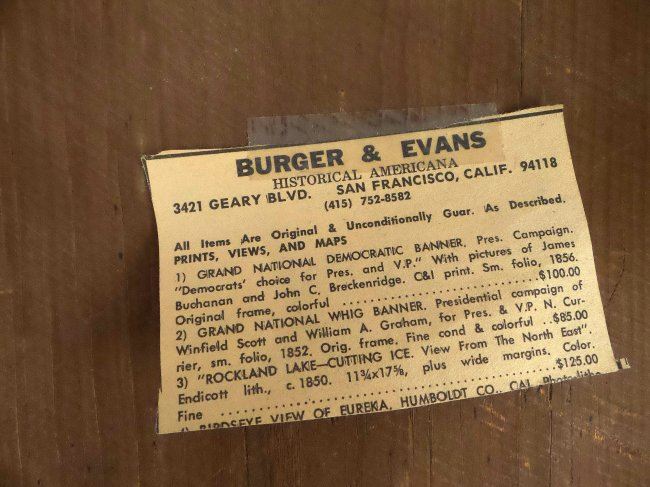 BURGER & EVANS
HISTORICAL AMERICANA
3421 GEARY BLVD. SAN FRANCISCO, CALIF. 94118
(415) 752-8582
All Items Are Original & Unconditionally Guar. As Described.
PRINTS, VIEWS, AND MAPS
1) GRAND NATIONAL DEMOCRATIC BANNER. Pres. Campaign.
"Democrats' choice for Pres. and V.P." With pictures of James
Buchanan and John C. Breckenridge. C&I print. Sm. folio, 1856.
Original frame, colorful ..............................$100.00
2) GRAND NATIONAL WHIG BANNER. Presidential campaign of
Winfield Scott and William A. Graham, for Pres. & V.P. N. Cur-
rier, sm. folio, 1852. Orig. frame. Fine cond & colorful ..$85.00
3) "ROCKLAND LAKE—CUTTING ICE. View From The North East".
Endicott lith., c. 1850. 11¾x17⅝, plus wide margins. Color.
Fine ..................................................$125.00
4) BIRDSEYE VIEW OF EUREKA, HUMBOLDT CO. CAL.